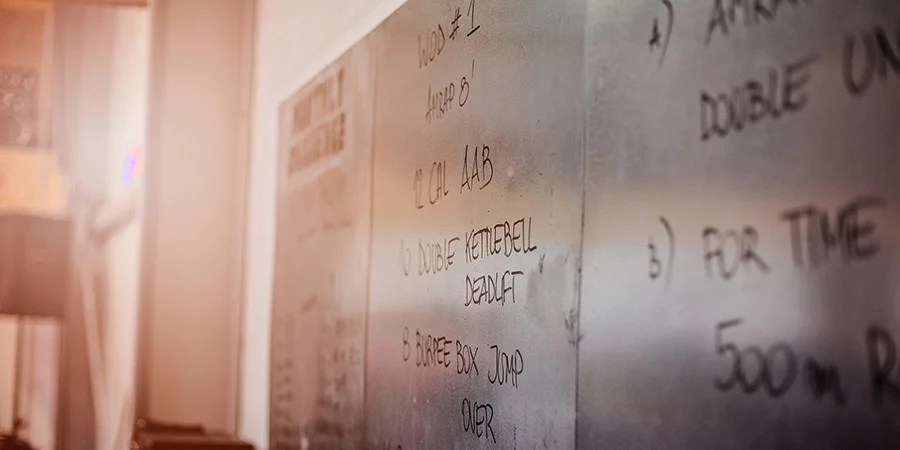 WOD #1
AMRAP 8'
12 CAL AAB
10 DOUBLE KETTLEBELL
DEADLIFT
8 BURPEE BOX JUMP
OVER
A) AMRAP
DOUBLE UN
B) FOR TIME
500m R